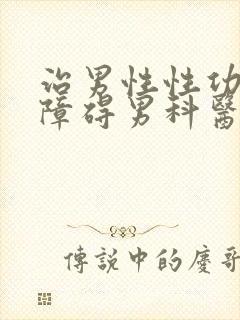 治男性性功
障碍男科醫
傳説中的慶哥